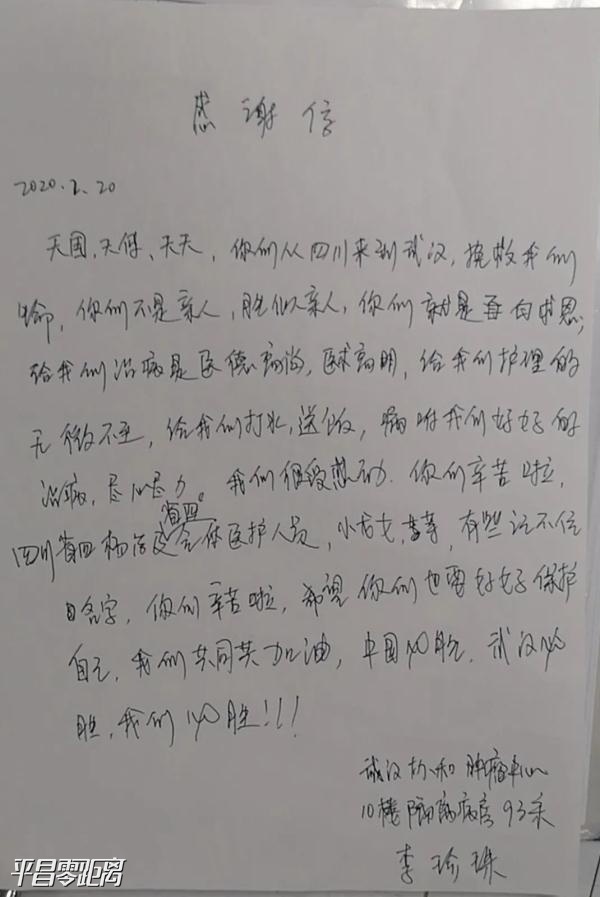 感谢信
2020.2.20
天国、天保、天天，你们从四川来到武汉，挽救我们
命，你们不是亲人，胜似亲人，你们就是白求恩，
给我们治病是医德高尚，医术高明，给我们护理的
无微不至，给我们打水，送饭，嘱咐我们好好的
治病，尽心尽力。我们很受感动．你们辛苦啦，
省四
四川省四 全体医护人员，小 有些记不住
名字，你们辛苦啦，希望你们也要好好保护
自己，我们共同共加油，中国必胜．武汉必
胜，我们必胜！！！
武汉协和肿瘤中心
10楼隔离病房93床
李珍珠
平昌零距离